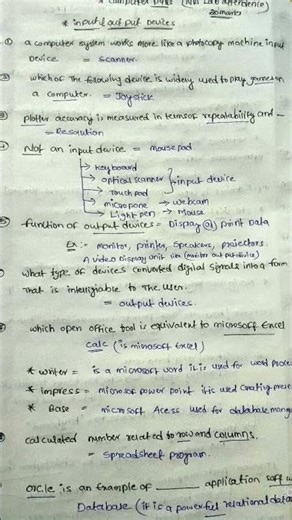 * Computer (Lab Attendence) 20marks
* input & out put Devices
① a computer system works more like a photocopy machine input
Device = scanner.
which of the following device is widely used to play games on
a computer. = Joystick
③ plotter accuracy is measured in terms of repeatability and _
= Resoution
Not an input device = mouse pad
→ key board
→ optical scanner } input device
→ Touch pad
→ micropone → webcam
→ Light pen → mouse
function of output devices = Display @ print Data
Ex :- monitor, printer, speakers, projectors.
A video Display unit
what type of devices converted digital signals into a form
that is intelligiable to the user.
= output devices.
which open office tool is equivalent to microsoft Excel
calc (is minosoft Excel)
* writer = is a microsoft word it is used for word proce
* impress = microsof power point it is used creating prese
* Base = microsoft Acess used for database mang
calculated number related to row and columns.
= spreadsheet program.
orcle is an example of ______ application soft w
Database (it is a powerful relational datab